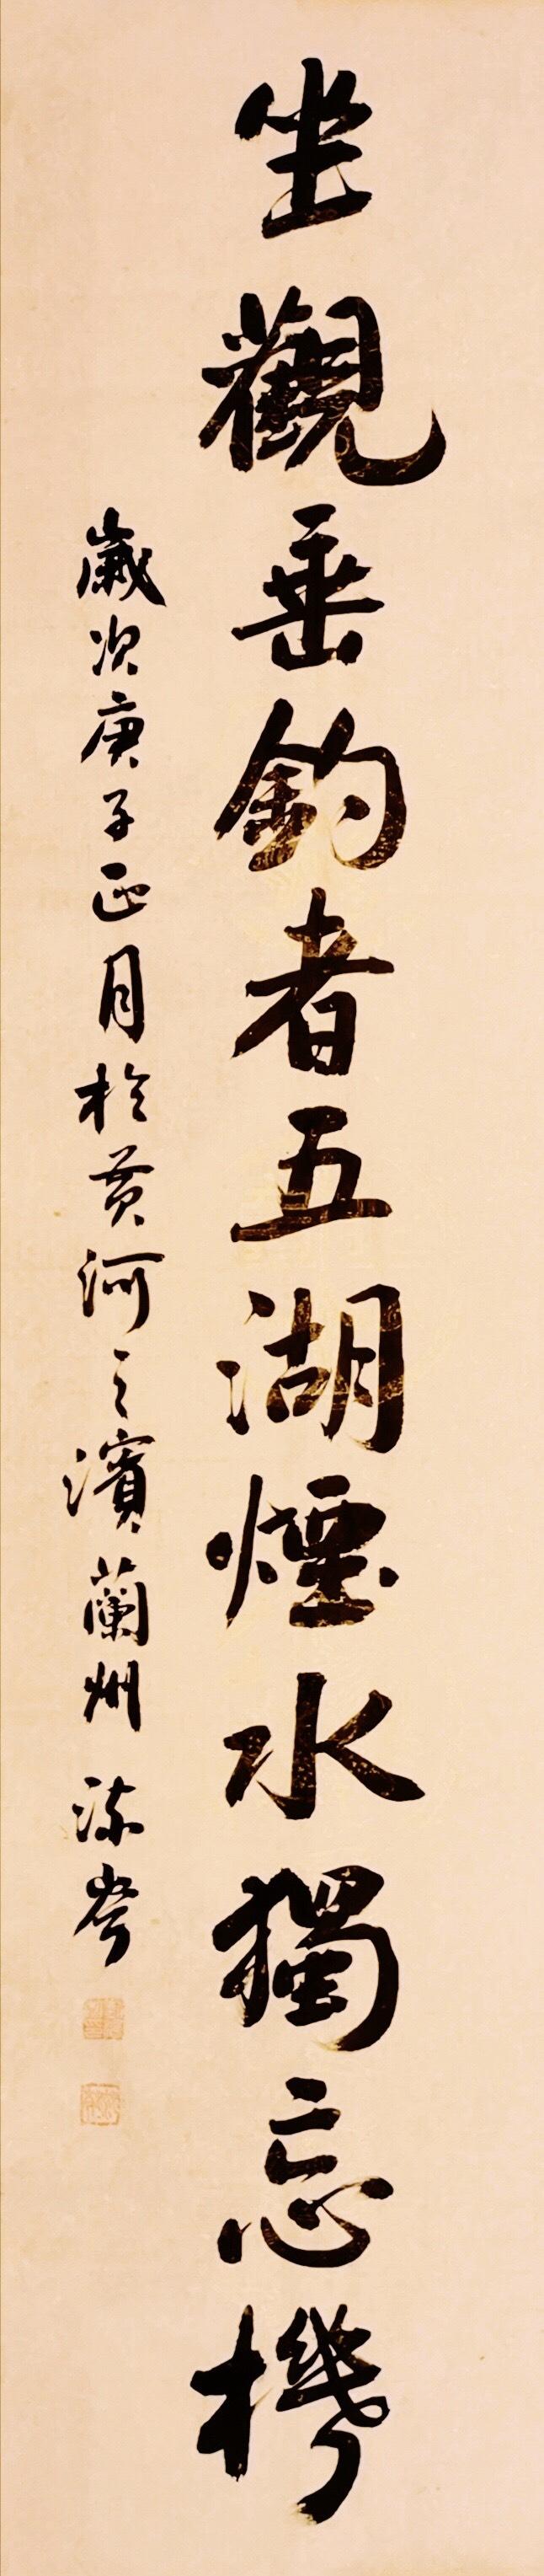 坐觀垂釣者五湖煙水獨忘機
歲次庚子正月於黃河之濱蘭州